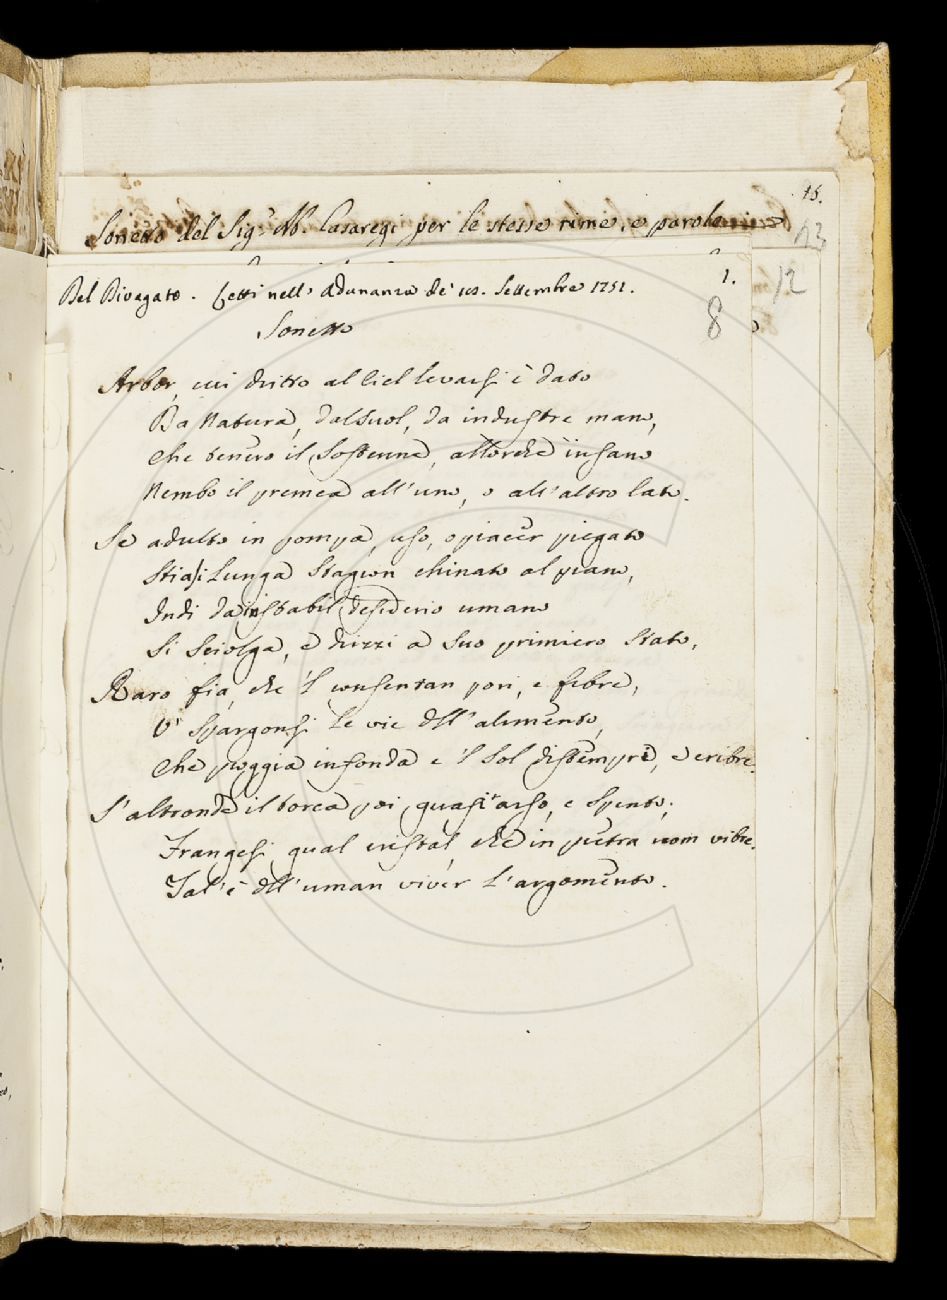 15.
Sonetto del Sig.r Ab. Casaregi per le stesse rime, e parole
13
Del Divagato. Letti nell' Adunanza de' 10. Settembre 1751.
1.
12
8
Sonetto
Arbor, cui dritto al Ciel levarsi è dato
Da Natura, dal suol, da industre mano,
Che tenero il sostenne, allorchè insano
Nembo il premea all'uno, o all'altro lato.
Se adulto in pompa, uso, o piacer piegato
Stiasi lunga stagion chinato al piano,
Indi da instabil desiderio umano
Si sciolga, e drizzi a suo primiero stato,
Raro fia, che 'l consentan pori, e fibre,
V' spargonsi le vie dell'alimento,
Che pioggia infonda e 'l Sol distempre, e cribre.
S'altronde il torca poi, quasi arso, e spento,
Frangesi qual cristal, che in pietra uom vibre.
Tal'è dell'uman viver l'argomento.